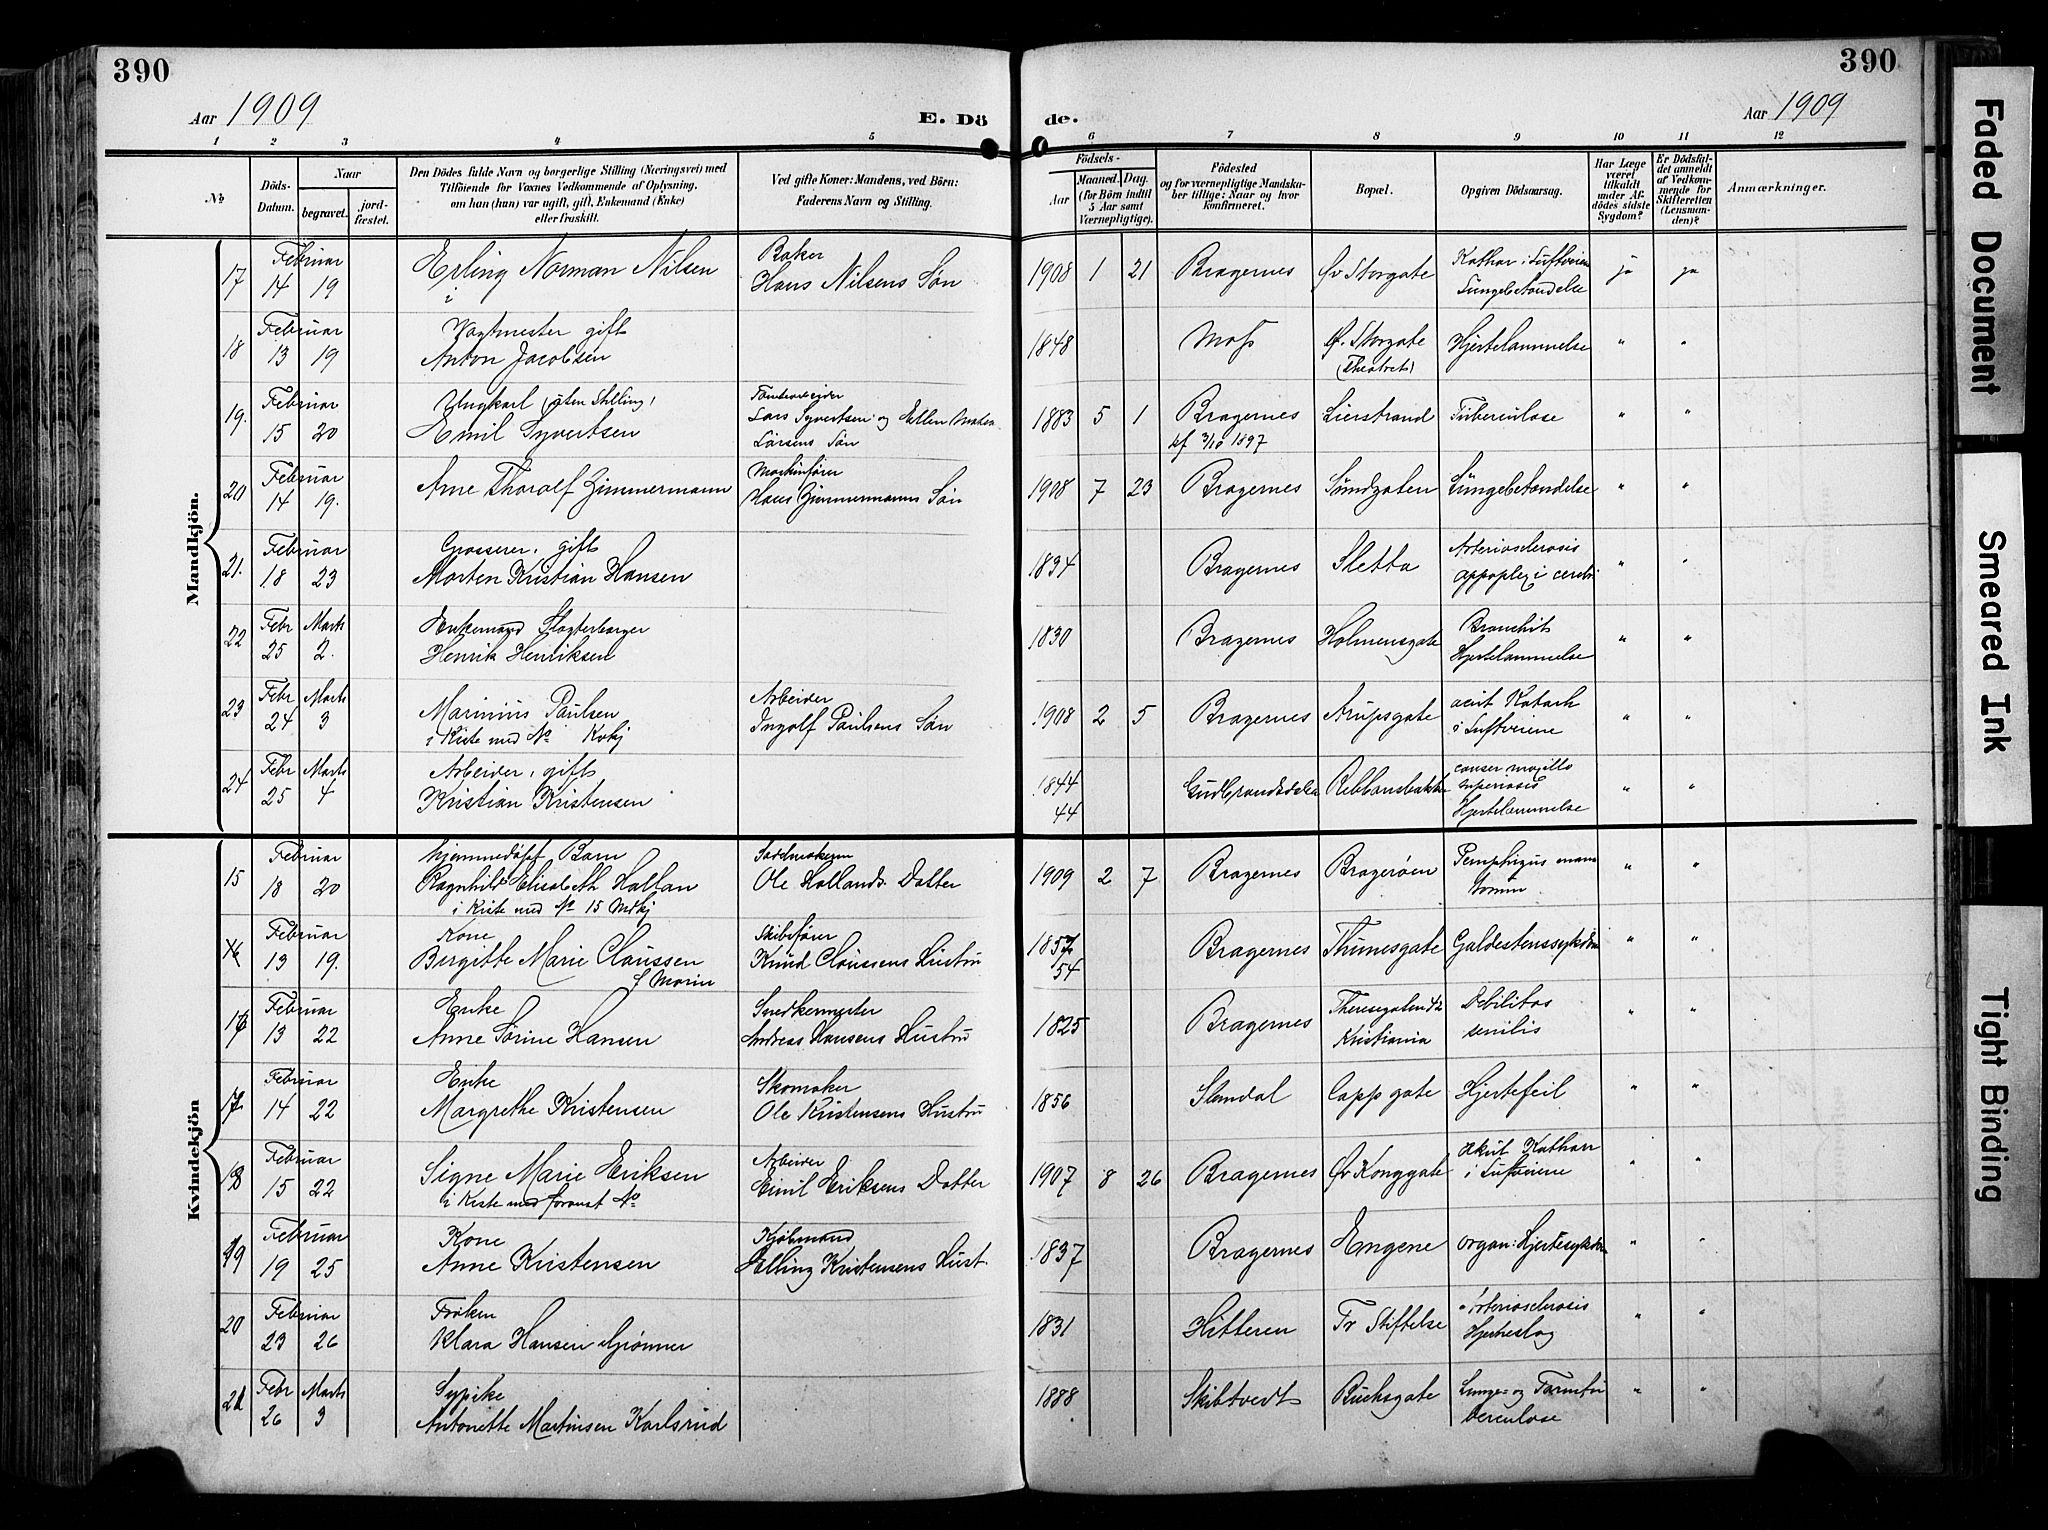 390
390
Aar 1909
E. Dö
de.
Aar 1909
1 2 3 4 5 6 7 8 9 10 11 12
No
Döds-Datum.
Naar
begravet.
jord-fæstet.
Den Dödes fulde Navn og borgerlige Stilling (Næringsvei) med
Tilföiende for Voxnes Vedkommende af Oplysning,
om han (hun) var ugift, gift, Enkemand (Enke)
eller fraskilt.
Ved gifte Koner: Mandens, ved Börn:
Faderens Navn og Stilling.
Födsels-
Aar
Maaned. Dag.
(for Börn indtil
5 Aar samt
Værnepligtige).
Födested
og for værnepligtige Mandska-
ber tillige: Naar og hvor
konfirmeret.
Bopæl.
Opgiven Dödsaarsag.
Har Læge
været
tilkaldt
under Af-
dödes sidste
Sygdom?
Er Dödsfal-
det anmeldt
af Vedkom-
mende for
Skifteretten
(Lensman-
den)?
Anmærkninger.
Mandkjön.
17 Februar 14 19 Erling Norman Nilsen Baker Hans Nilsens Søn 1908 1 21 Bragernes Øv Storgate Kathar i Luftveiene Lungebetændelse ja ja
18 Februar 13 19 Vagtmester gift Anton Jacobsen 1848 Moss Ø. Storgate (Theatret) Hjertelammelse " "
19. Februar 15 20 Ungkarl (uten Stilling) Emil Syvertsen Lars Syvertsen og Ellen Larsens Søn 1883 5 1 Bragernes kf 3/10 1897 Lierstrand Tuberculose " "
20 Februar 14 19. Arne Thoralf Zimmermann Maskinfører Hans Zimmermanns Søn 1908 7 23 Bragernes Sundgaten Lungebetændelse " "
21. Februar 18 23 Grosserer, gift Morten Kristian Hansen 1834 Bragernes Sletta Arteriosclerosis appoplexi cerebri " "
22 Febr 25 Marts 2. Enkemand Slagterborger Henrik Henriksen 1830 Bragernes Holmensgate Bronchit Hjertelammelse " "
23 Febr 24 Marts 3 Marinius Paulsen i Kiste med No Kvkj Arbeider Ingolf Paulsens Søn 1908 2 5 Bragernes Arupsgate acut Katarh i Luftveiene " "
24 Febr 25 Marts 4 Arbeider, gift Kristian Kristensen 1844 44 Gudbrandsdalen Ribbansbakken cancer maxillo superiosis Hjertelammelse " "
Kvindekjön
15 Februar 18 20 hjemmedøpt Barn Ragnhild Elisabeth Hallan i Kiste med No 15 Mdkj Ole Hallands Datter 1909 2 7 Bragernes Bragerøen Pemphigus " "
16 Februar 13 19. Kone Birgitte Marie Claussen f Morin Skibsfører Knud Claussens Hustru 1857 54 Bragernes Thunesgate Galdestenssykdom " "
16 Februar 13 22 Enke Anne Sørine Hansen Snedkermester Andreas Hansens Hustru 1825 Bragernes Theresegaten 42 Kristiania Debilitas senilis " "
17 Februar 14 22 Enke Margrethe Kristensen Skomaker Ole Kristensens Hustru 1856 Slemdal Cappgate Hjertefeil " "
18 Februar 15 22 Signe Marie Eriksen i Kiste med foranst No Arbeider Emil Eriksens Datter 1907 8 26 Bragernes Øv Konggate akut Katharr i Luftveiene " "
19 Februar 19 25 Kone Anne Kristensen Kjøbmand Elling Kristensens Hust. 1837 Bragernes Engene organ: Hjertesykdom " "
20 Februar 23 26 Frøken Klara Hansen Grønner 1831 Hitteren Tr Stiftelse Arteriosclerosis Hjerteslag " "
21 Febr 26 Marts 3 Sypike Antonette Martinsen Karlsrud 1888 Skibtvedt Buchsgate Lunge- og Tarmtuberculose " "
Faded Document
Smeared Ink
Tight Binding